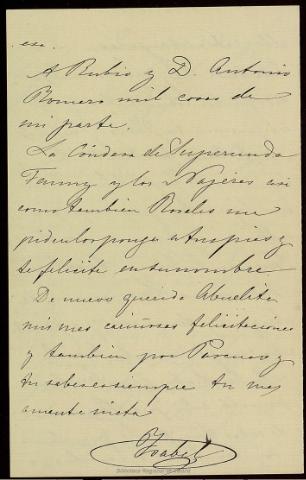 esa.
A Rubio y D. Antonio
Romero mil cosas de
mi parte.
La Condesa de Superunda
Fanny y los Nájeras asi
como tambien Rosales me
piden los ponga a tus pies y
te felicite en su nombre
De nuevo querida Abuelita
mis mas cariñosas felicitaciones
y tambien por Pascuas y
tu sabes es siempre tu mas
amante nieta
Ysabel
Biblioteca Regional de Madrid